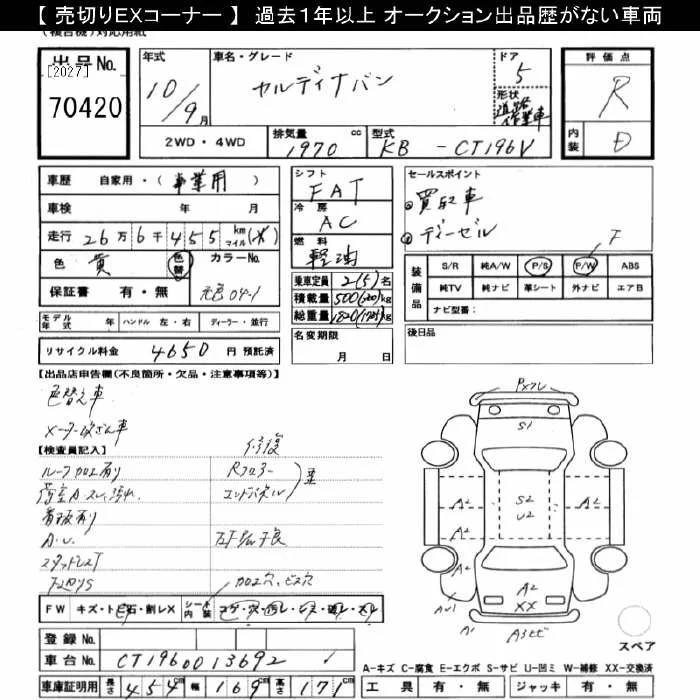 【 売切りEXコーナー 】 過去1年以上 オークション出品歴がない車両
出品No.
[2027]
70420
年式
10/9月
車名・グレード
カルディナバン
ドア
5
形状
道路作業車
評価点
R
内装
D
2WD・4WD
排気量 cc
1970
型式
KB - CT196V
車歴 自家用・(事業用)
車検 年 月
走行 26万6千455 km マイル (*)
色 黄 色替 カラーNo.
保証書 有・無 元色 04-1
シフト
FAT
冷房
AC
燃料
軽油
乗車定員 2(5)名
積載量 500(300)kg
総重量 kg
名変期限
月 日
セールスポイント
買取車
ディーゼル
装備品
S/R 純A/W P/S P/W ABS
純TV 純ナビ 革シート 外ナビ エアB
ナビ型番:
後日品
モデル年式 年 ハンドル 左・右 ディーラー・並行
リサイクル料金 4650 円 預託済
【出品店申告欄(不良箇所・欠品・注意事項等)】
色替え車
メーター改ざん車
【検査員記入】 修復
ルーフ加工有り Rフロアー
荷室Aスレ、汚れ エンドパネル
看板有り
A.U.
スタッドレスT
下廻りS 加工穴、ビス穴
FW キズ・ト石・割レX シート内装
登録No.
車台No. CT196 0013692
車庫証明用 長さ 454cm 幅 169cm 高さ 171cm
PXフレ
S1
A2 S2 A2
U2
A2
A2 A2
XX
AU1
A1 A3ヒビ
スペア
A-キズ C-腐食 E-エクボ S-サビ U-凹ミ W-補修 XX-交換済
工具 有・無 ジャッキ 有・無